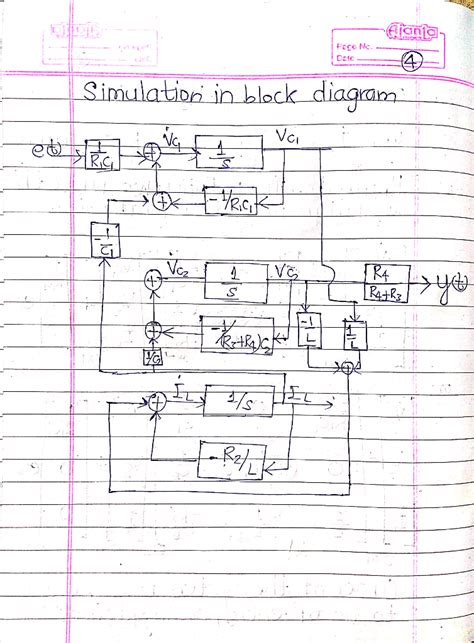 Ajanta
Page No.
Date
4
Simulation in block diagram
e(t)
1/R₁C₁
V̇c₁
1/s
Vc₁
-1/R₁C₁
-1/C₁
V̇c₂
1/s
Vc₂
R₄/R₄+R₃
y(t)
-1/(R₃+R₄)C₂
-1/L
1/L
İL
1/s
IL
-R₂/L